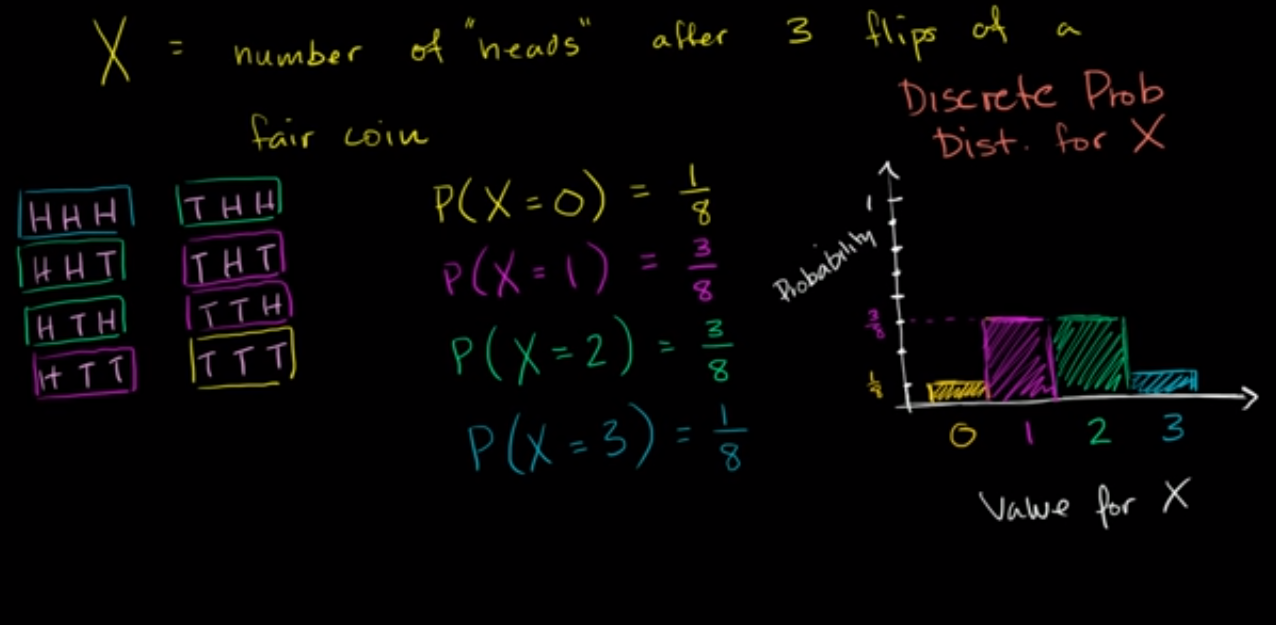 X = number of "heads" after 3 flips of a
fair coin
HHH THH
HHT THT
HTH TTH
HTT TTT
P(X=0) = 1/8
P(X=1) = 3/8
P(X=2) = 3/8
P(X=3) = 1/8
Discrete Prob
Dist. for X
Probability
1
3/8
1/8
0 1 2 3
Value for X